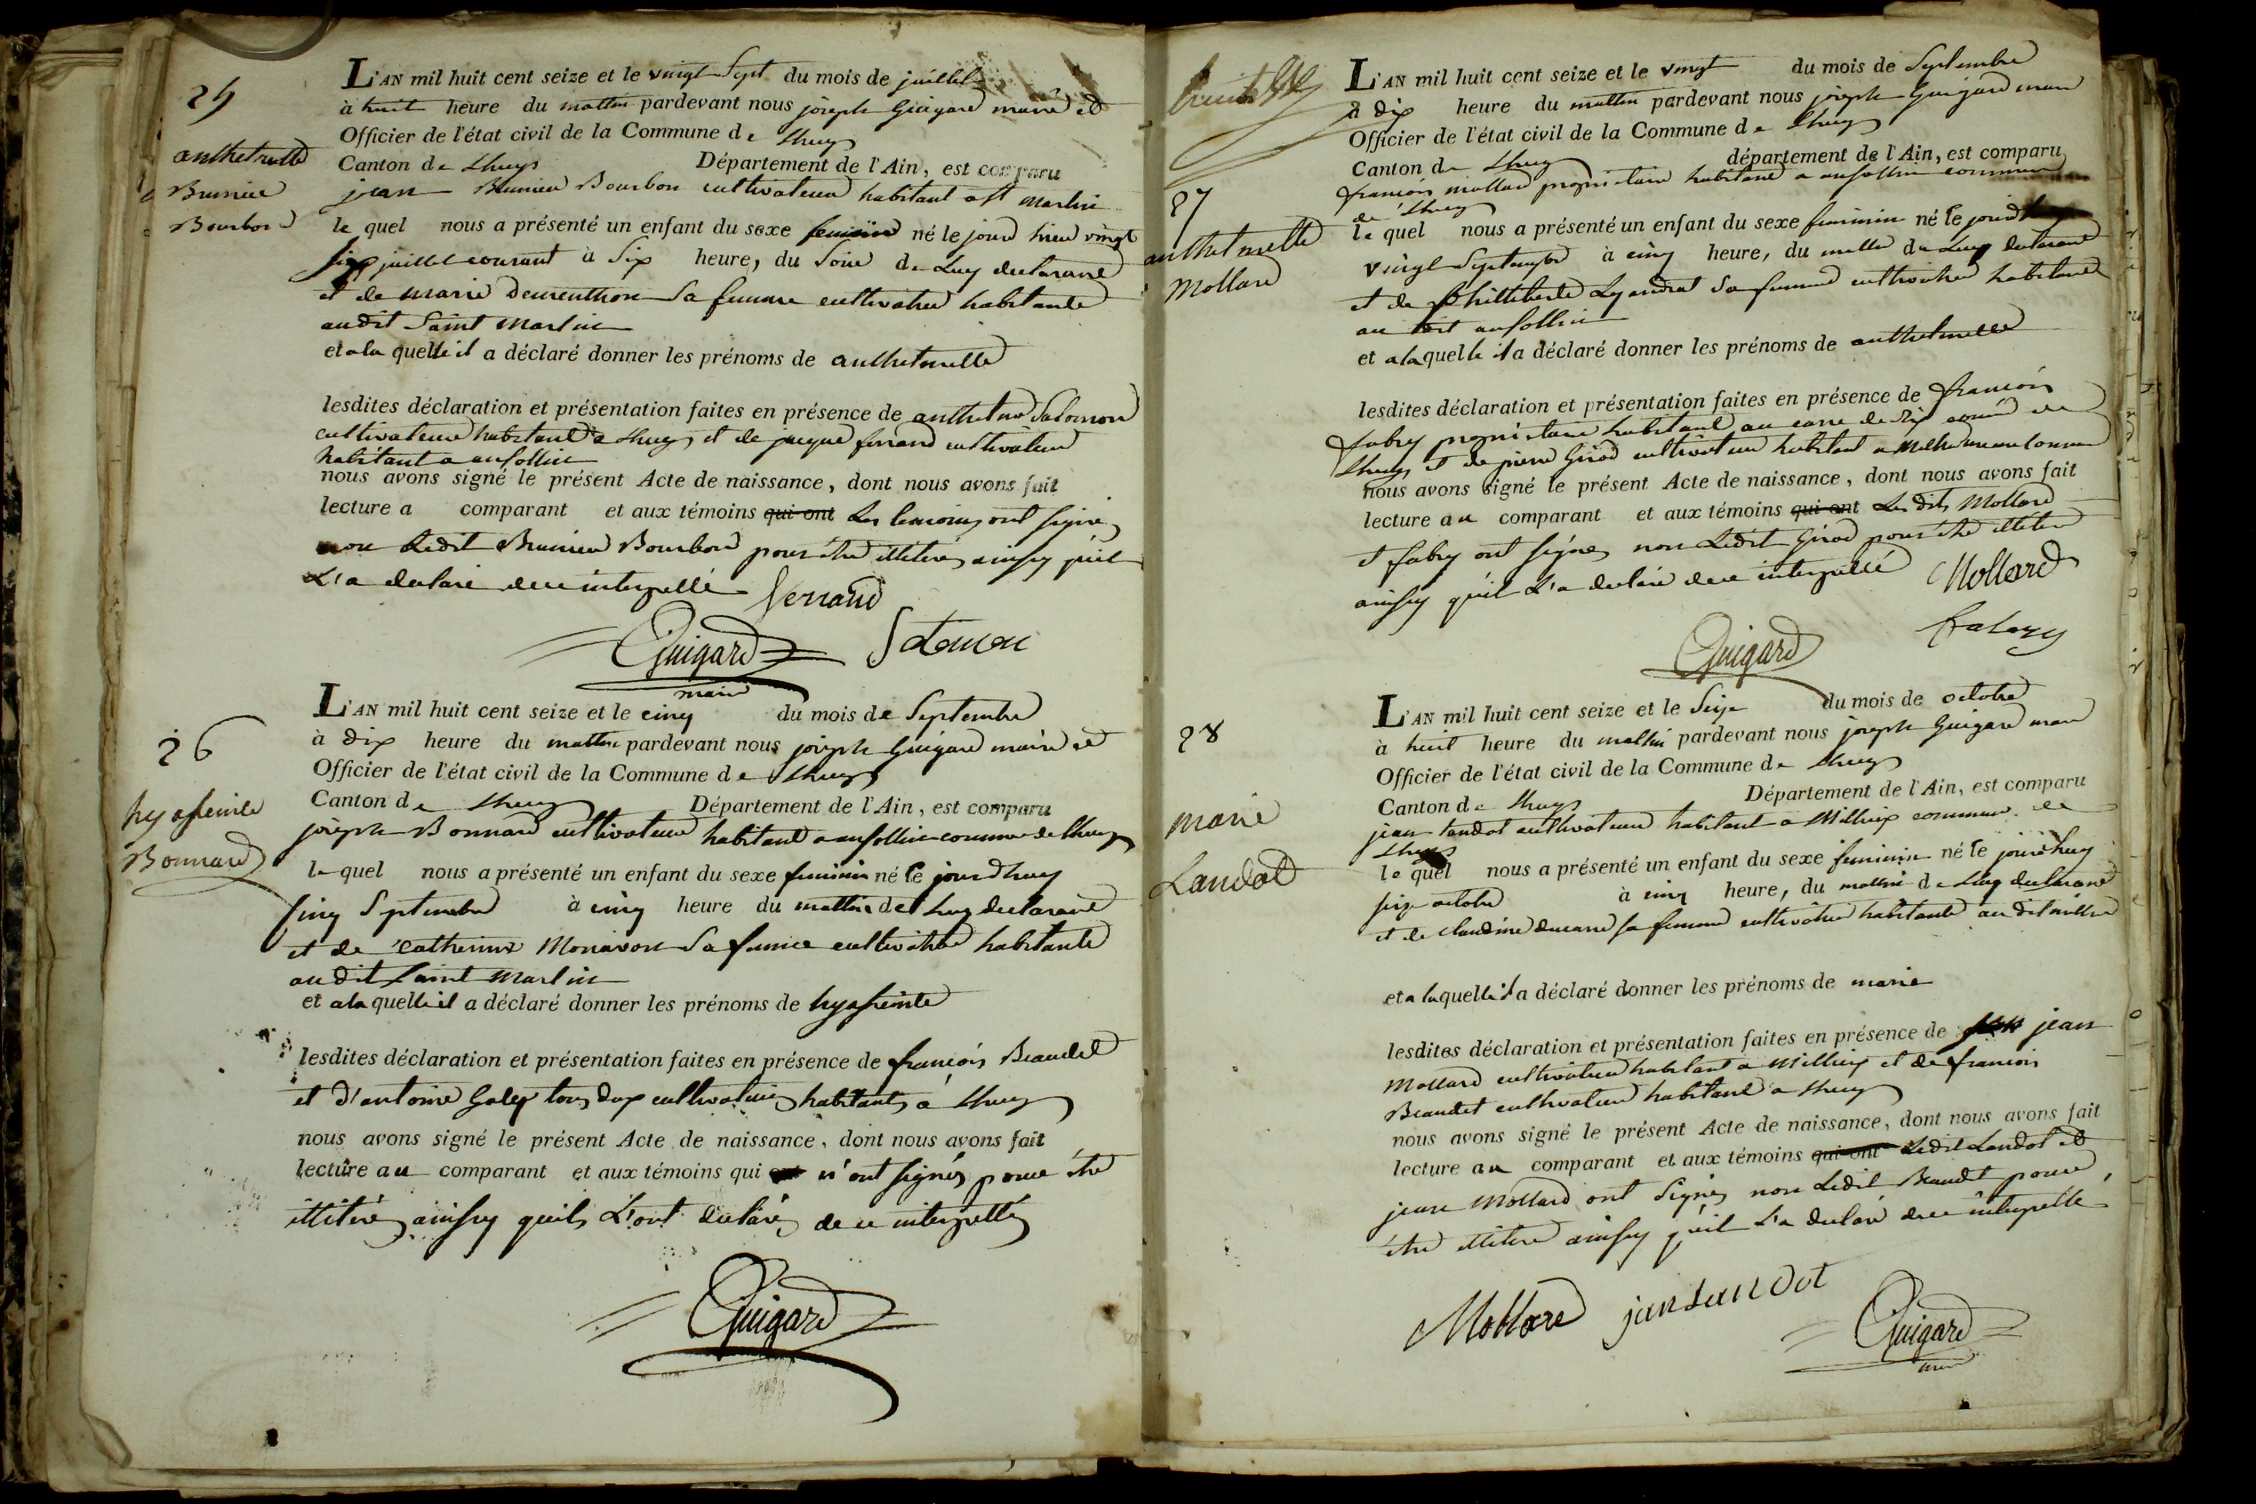 25
anthelmette
Brunier
Bourbon
L'AN mil huit cent seize et le vingt Sept du mois de juillet
à huit heure du mattin pardevant nous joseph Guigard maire et
Officier de l'état civil de la Commune de Lhuys
Canton de Lhuys Département de l'Ain, est comparu
jean Brunier Bourbon cultivateur habitant a St Martin
le quel nous a présenté un enfant du sexe feminin né le jour hier vingt
six juillet courant à Six heure, du Soir de Luy declarant
et de Marie Dementhon Sa femme cultivatrice habitante
audit Saint Martin
et a la quelle il a déclaré donner les prénoms de anthelmette
lesdites déclaration et présentation faites en présence de anthelme Salomon
cultivateur habitant a Lhuys et de jacque ferrand cultivateur
habitant a ansollin
nous avons signé le présent Acte de naissance, dont nous avons fait
lecture a comparant et aux témoins qui ont Les temoins ont signé
non Ledit Brunier Bourbon pour être illitéré ainsy qu'il
L'a declaré de ce interpellé
ferrand
Guigard Salomon
maire
26
hyassinte
Bonnard
L'AN mil huit cent seize et le cinq du mois de Septembre
à dix heure du mattin pardevant nous joseph Guigard maire et
Officier de l'état civil de la Commune de Lhuys
Canton de Lhuys Département de l'Ain, est comparu
joseph Bonnard cultivateur habitant a ansollin commune de Lhuys
le quel nous a présenté un enfant du sexe feminin né le jourdhuy
cinq Septembre à cinq heure du mattin de luy declarant
et de Catherine Monavon Sa femme cultivatrice habitante
au dit Saint Martin
et a la quelle il a déclaré donner les prénoms de hyassinte
lesdites déclaration et présentation faites en présence de françois Beaudet
et d'antoine Goley tous deux cultivateurs habitants à Lhuys
nous avons signé le présent Acte de naissance, dont nous avons fait
lecture au comparant et aux témoins qui n'ont signés pour être
illitérés ainsy quils L'ont declaré de ce interpellés
Guigard
27
anthelmette
Mollard
L'AN mil huit cent seize et le vingt du mois de Septembre
à dix heure du mattin pardevant nous joseph Guigard maire
Officier de l'état civil de la Commune de Lhuys
Canton de Lhuys département de l'Ain, est comparu
françois mollard proprietaire habitant a ansollin commune
de Lhuys
le quel nous a présenté un enfant du sexe feminin né le jourd
vingt Septembre à cinq heure, du mattin de Luy declarant
et de Philliberte Lyandrat Sa femme cultivatrice habitante
au dit ansollin
et a laquelle il a déclaré donner les prénoms de anthelmette
lesdites déclaration et présentation faites en présence de françois
fabry proprietaire habitant au
Lhuys et de pierre Girod cultivateur habitant a
nous avons signé le présent Acte de naissance, dont nous avons fait
lecture au comparant et aux témoins qui ont Les dits Mollard
et fabry ont signés non Ledit Girod pour être illitéré
ainsy qu'il L'a declaré de ce interpellé Mollard
Guigard
28
marie
Landot
L'AN mil huit cent seize et le Seize du mois de octobre
à huit heure du mattin pardevant nous joseph Guigard maire
Officier de l'état civil de la Commune de Lhuys
Canton de Lhuys Département de l'Ain, est comparu
jean Landot cultivateur habitant a Millieux commune de
Lhuys
le quel nous a présenté un enfant du sexe feminin né le jourdhuy
seize octobre à cinq heure, du mattin de Luy declarant
et de Claudine ducarre sa femme cultivatrice habitante au dit millieux
et a laquelle il a déclaré donner les prénoms de marie
lesdites déclaration et présentation faites en présence de jean
Mollard cultivateur habitant a Millieux et de françois
Beaudet cultivateur habitant a Lhuys
nous avons signé le présent Acte de naissance, dont nous avons fait
lecture au comparant et aux témoins qui ont Ledit Landot et
jean Mollard ont Signés non Ledit Beaudet pour
être illitéré ainsy qu'il L'a declaré de ce interpellé
Mollard jan Landot
Guigard
maire